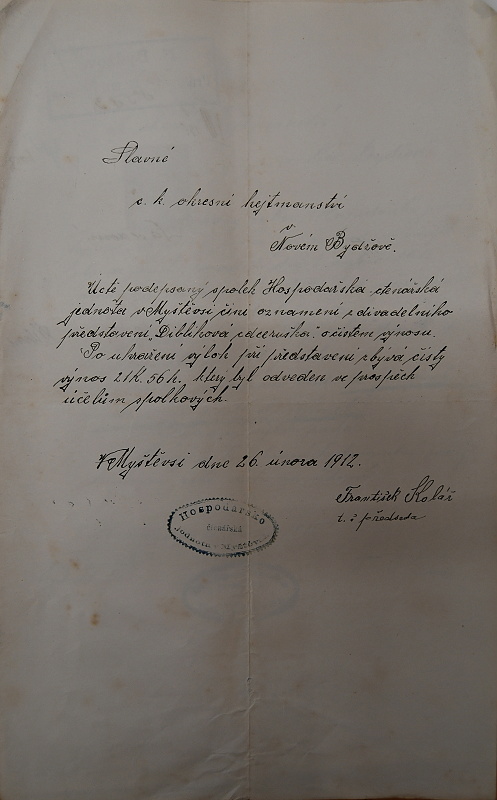 Slavné
c. k. okresní hejtmanství
v
Novém Bydžově.
Uctě podepsaný spolek Hospodářská čtenářská
jednota v Myštěvsi činí oznámení z divadelního
představení „Diblíkova dceruška" o čistém výnosu.
Po uhražení výloh při představení zbývá čistý
výnos 21K. 56h. který byl odveden ve prospěch
účelům spolkových.
V Myštěvsi dne 26. února 1912.
František Kolář
t. č předseda
Hospodářsko
čtenářská
Jednota